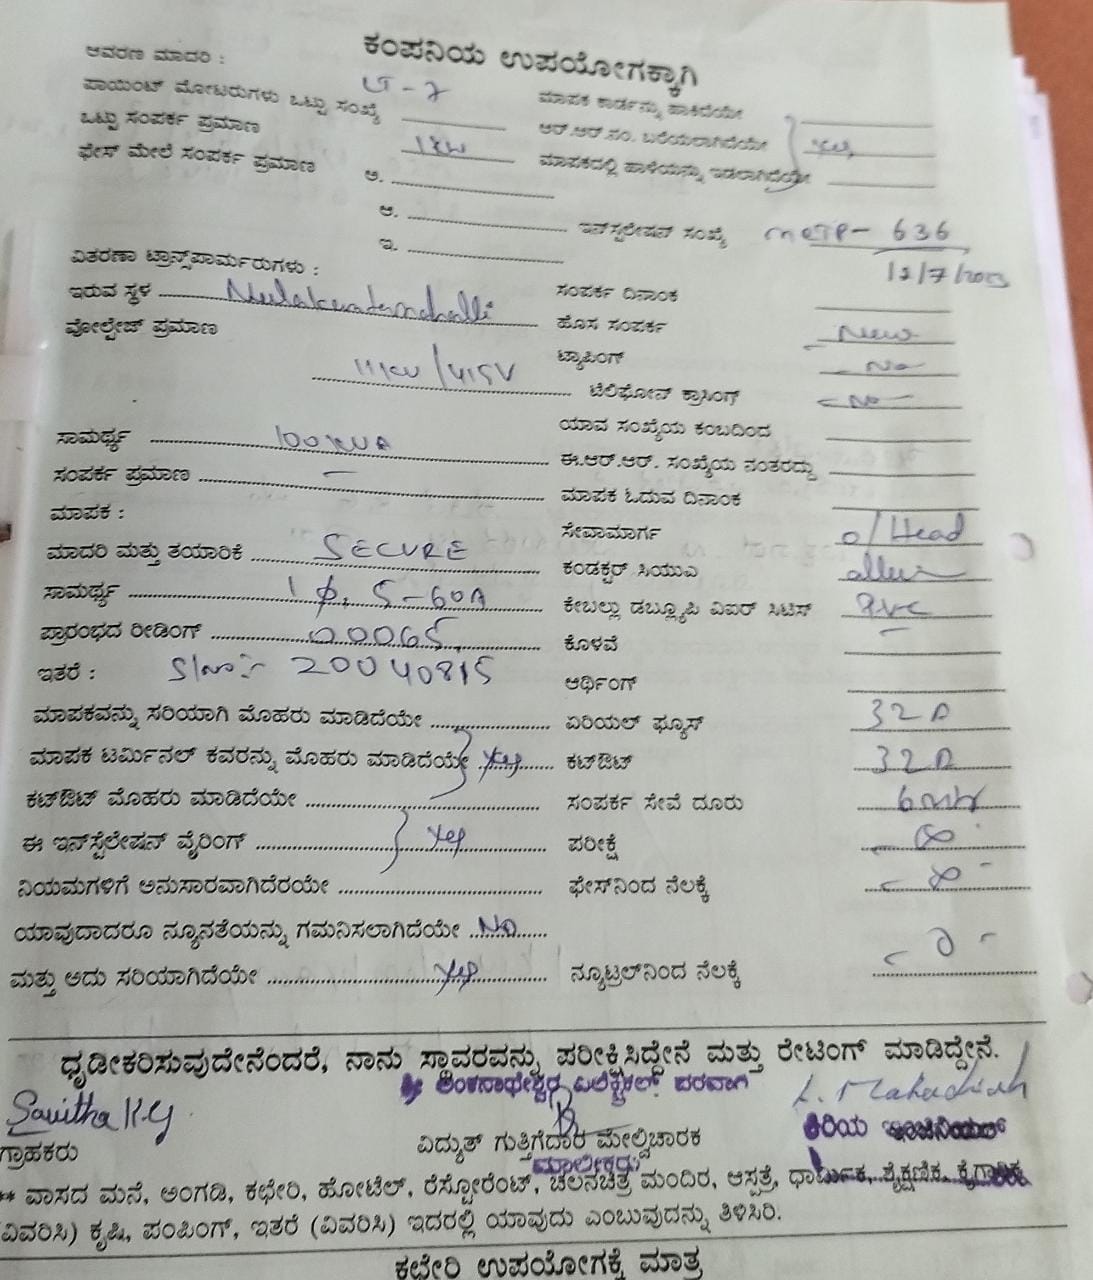 ಕಂಪನಿಯ ಉಪಯೋಗಕ್ಕಾಗಿ
ಆವರಣ ಮಾದರಿ :
ಪಾಯಿಂಟ್ ಮೋಟರುಗಳು ಒಟ್ಟು ಸಂಖ್ಯೆ ಮಾಪಕ ಕಾರ್ಡನ್ನು ಹಾಕಿದೆಯೇ
ಒಟ್ಟು ಸಂಪರ್ಕ ಪ್ರಮಾಣ 1KW ಆರ್.ಆರ್.ನಂ. ಬರೆಯಲಾಗಿದೆಯೇ Yes
ಫೇಸ್ ಮೇಲೆ ಸಂಪರ್ಕ ಪ್ರಮಾಣ ಅ. ಮಾಪಕದಲ್ಲಿ ಹಾಳೆಯನ್ನು ಇಡಲಾಗಿದೆಯೇ
ಆ. ಇನ್ಸ್ಟಲೇಷನ್ ಸಂಖ್ಯೆ 636
ಇ.
ವಿತರಣಾ ಟ್ರಾನ್ಸ್‌ಫಾರ್ಮರುಗಳು :
ಇರುವ ಸ್ಥಳ ಸಂಪರ್ಕ ದಿನಾಂಕ
ವೋಲ್ಟೇಜ್ ಪ್ರಮಾಣ ಹೊಸ ಸಂಪರ್ಕ New
ಟ್ಯಾಪಿಂಗ್ No
11KV/415V ಟೆಲಿಫೋನ್ ಕ್ರಾಸಿಂಗ್ No
ಸಾಮರ್ಥ್ಯ 100KVA ಯಾವ ಸಂಖ್ಯೆಯ ಕಂಬದಿಂದ
ಸಂಪರ್ಕ ಪ್ರಮಾಣ - ಈ.ಆರ್.ಆರ್. ಸಂಖ್ಯೆಯ ನಂತರದ್ದು
ಮಾಪಕ : ಮಾಪಕ ಓದುವ ದಿನಾಂಕ
ಮಾದರಿ ಮತ್ತು ತಯಾರಿಕೆ SECURE ಸೇವಾಮಾರ್ಗ o/Head
ಸಾಮರ್ಥ್ಯ 1ϕ, 5-60A ಕಂಡಕ್ಟರ್ ಸಿಯುಎ
ಪ್ರಾರಂಭದ ರೀಡಿಂಗ್ 00065 ಕೇಬಲ್ಲು ಡಬ್ಲ್ಯೂಪಿ ವಿಐಆರ್ ಸಿಟಿಸ್ PVC
ಇತರೆ : S/No:- 20040815 ಕೊಳವೆ -
ಆರ್ಥಿಂಗ್
ಮಾಪಕವನ್ನು ಸರಿಯಾಗಿ ಮೊಹರು ಮಾಡಿದೆಯೇ ಏರಿಯಲ್ ಫ್ಯೂಸ್ 32A
ಮಾಪಕ ಟರ್ಮಿನಲ್ ಕವರನ್ನು ಮೊಹರು ಮಾಡಿದೆಯೇ Yes ಕಟ್‌ಔಟ್ 32A
ಕಟ್‌ಔಟ್ ಮೊಹರು ಮಾಡಿದೆಯೇ ಸಂಪರ್ಕ ಸೇವೆ ದೂರು
ಈ ಇನ್‌ಸ್ಟೆಲೇಷನ್ ವೈರಿಂಗ್ Yes ಪರೀಕ್ಷೆ ∞
ನಿಯಮಗಳಿಗೆ ಅನುಸಾರವಾಗಿದೆರಯೇ ಫೇಸ್‌ನಿಂದ ನೆಲಕ್ಕೆ - ∞ -
ಯಾವುದಾದರೂ ನ್ಯೂನತೆಯನ್ನು ಗಮನಿಸಲಾಗಿದೆಯೇ No
ಮತ್ತು ಅದು ಸರಿಯಾಗಿದೆಯೇ Yes ನ್ಯೂಟ್ರಲ್‌ನಿಂದ ನೆಲಕ್ಕೆ - 0 -
ಧೃಡೀಕರಿಸುವುದೇನೆಂದರೆ, ನಾನು ಸ್ಥಾವರವನ್ನು ಪರೀಕ್ಷಿಸಿದ್ದೇನೆ ಮತ್ತು ರೇಟಿಂಗ್ ಮಾಡಿದ್ದೇನೆ.
ಶ್ರೀ ಅಂಕನಾಥೇಶ್ವರ ಎಲೆಕ್ಟ್ರಿಕಲ್ ಪರವಾಗಿ
Savitha K.G
ಗ್ರಾಹಕರು ವಿದ್ಯುತ್ ಗುತ್ತಿಗೆದಾರ ಮೇಲ್ವಿಚಾರಕ ಕಿರಿಯ ಇಂಜಿನಿಯರ್
ಮಾಲೀಕರು
** ವಾಸದ ಮನೆ, ಅಂಗಡಿ, ಕಛೇರಿ, ಹೋಟೆಲ್, ರೆಸ್ಟೋರೆಂಟ್, ಚಲನಚಿತ್ರ ಮಂದಿರ, ಆಸ್ಪತ್ರೆ, ಧಾರ್ಮಿಕ, ಶೈಕ್ಷಣಿಕ, ಕೈಗಾರಿಕ
(ವಿವರಿಸಿ) ಕೃಷಿ, ಪಂಪಿಂಗ್, ಇತರೆ (ವಿವರಿಸಿ) ಇದರಲ್ಲಿ ಯಾವುದು ಎಂಬುವುದನ್ನು ತಿಳಿಸಿರಿ.
ಕಛೇರಿ ಉಪಯೋಗಕ್ಕೆ ಮಾತ್ರ